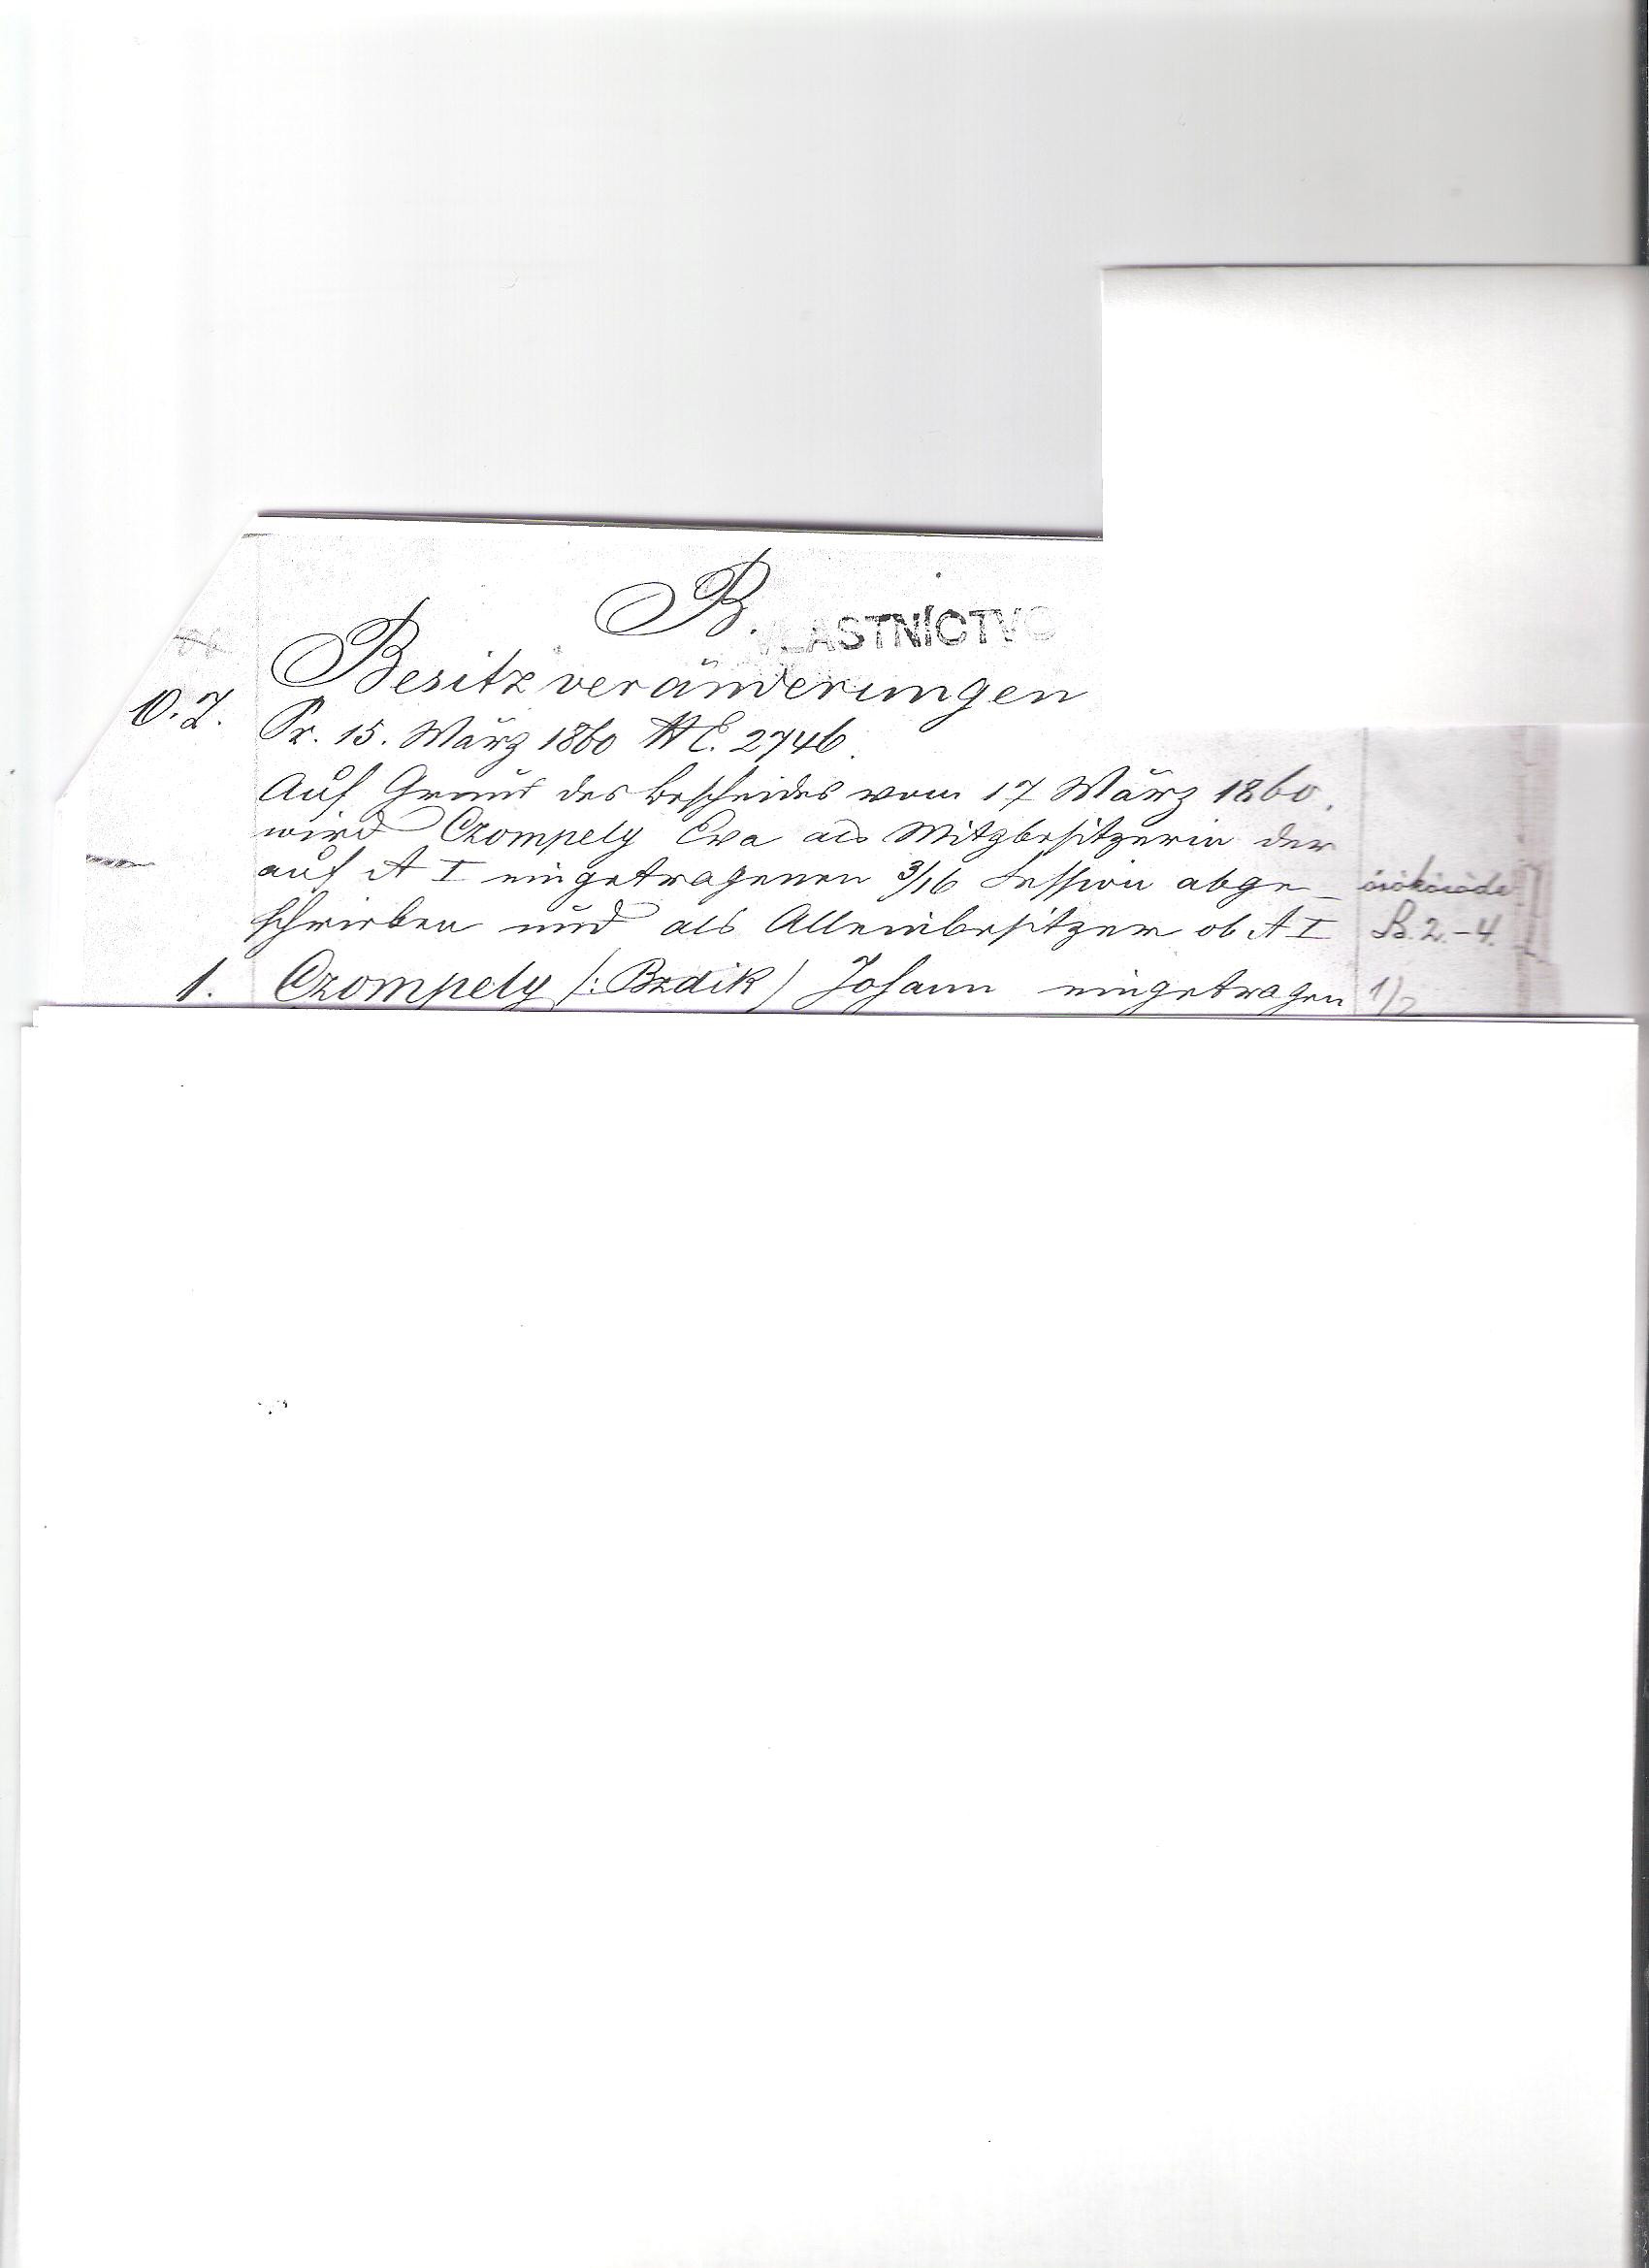 B.
VLASTNÍCTVO
Besitzveränderungen
O. Z. Pr. 15. März 1860 2746.
Auf Grund des Bescheides vom 17 März 1860.
wird Czompely Eva als Mitzbesitzerin der
auf A I eingetragenen 3/16 Session abge-
schrieben und als Alleinbesitzer ob A I B. 2.-4.
1. Czompely (: Bzdik) Johann eingetragen 1/2